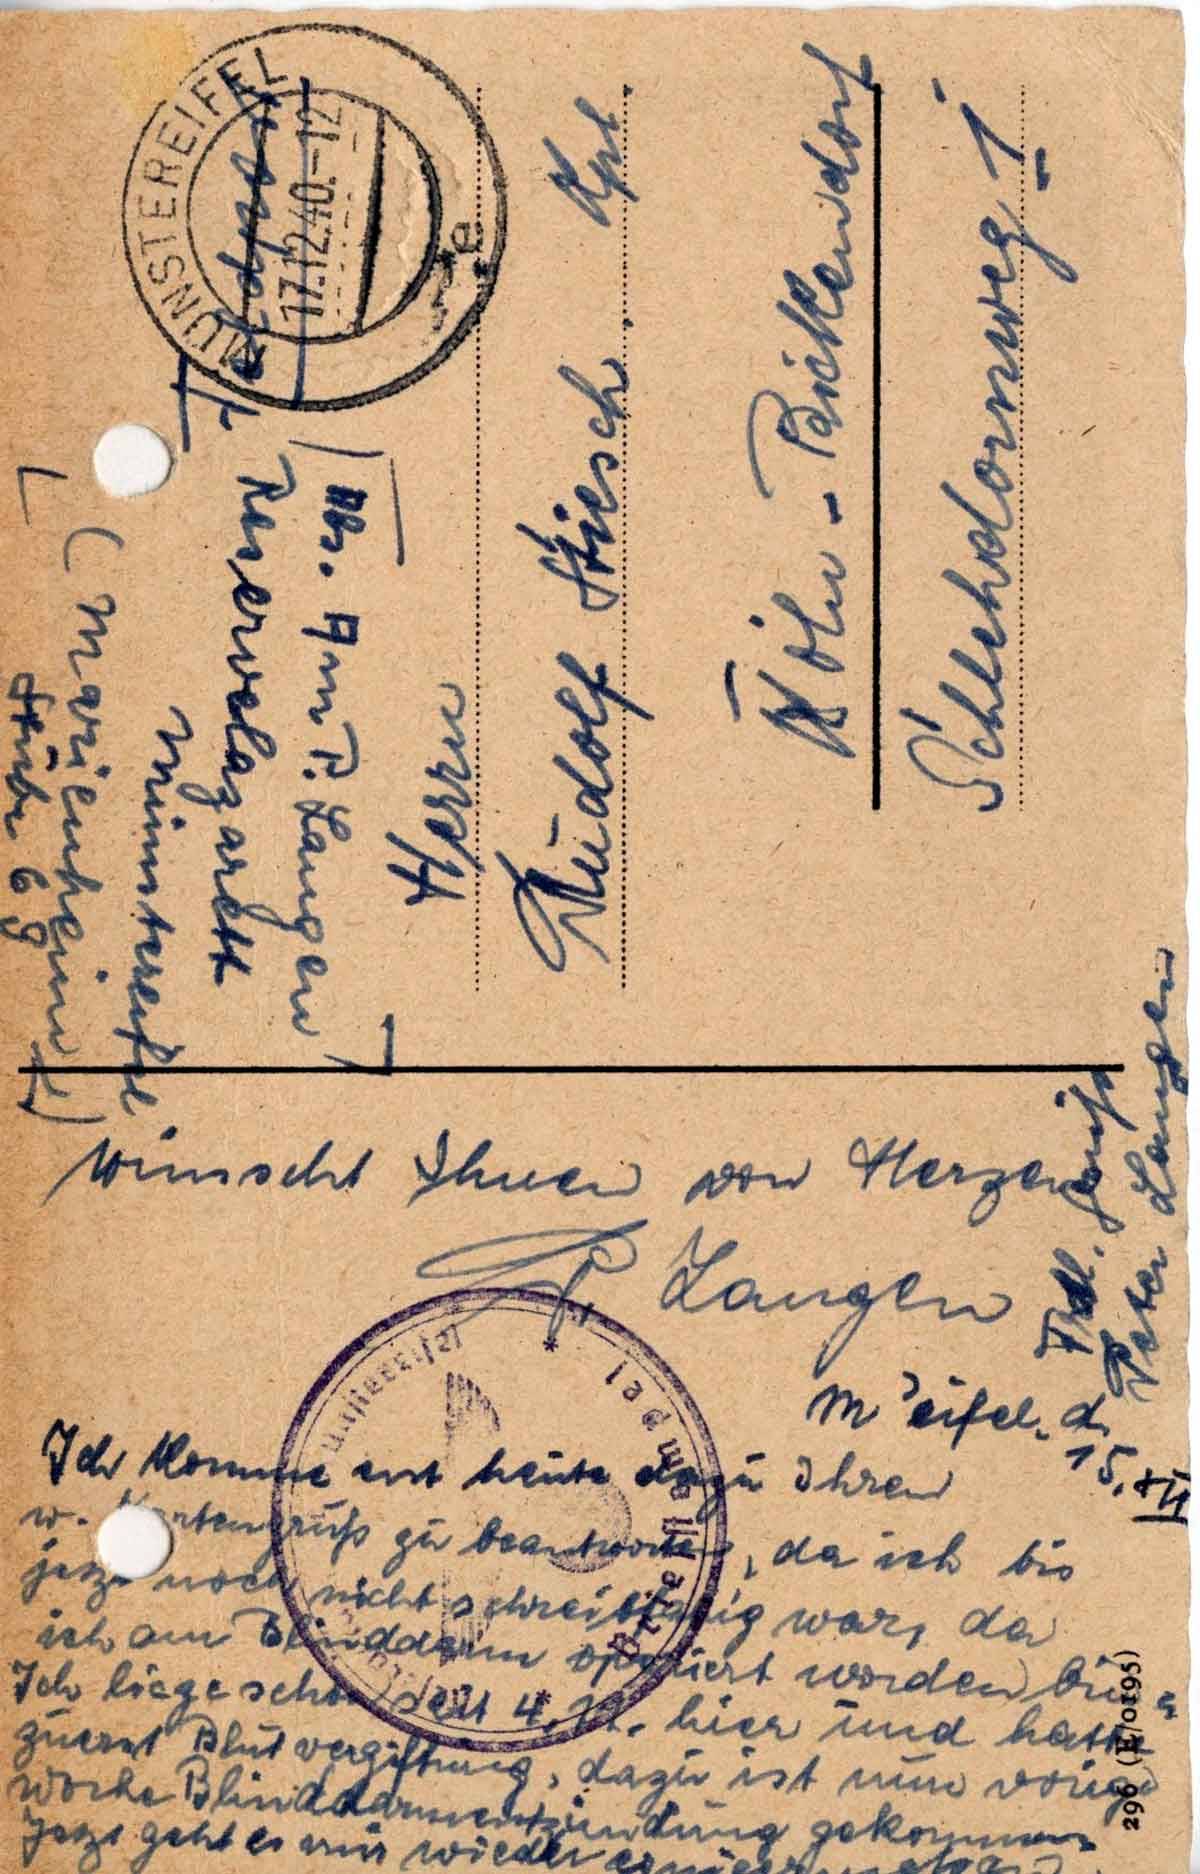 MÜNSTEREIFEL
17.12.40.-12
e
Feldpost
Abs. Am P. Langen
Reservelazarett
Münstereifel
(Marienheim)
Stube 6
Herrn
Rudolf Hiesch
Köln-Bickendorf
Schlehdornweg 1
wünscht Ihnen von Herzen
P. Langen
M'eifel. d.
15. XII
Ich komme erst heute dazu Ihren
w. Kartengruß zu beantworten, da ich bis
jetzt noch nicht schreibfähig war, da
ich am Blinddarm operiert worden bin
Ich liege schon seit 4.11. hier und hatte
zuerst Blutvergiftung, dazu ist nun vorige
Woche Blinddarmentzündung gekommen
Jetzt geht es mir wieder
Frdl. Gruß
Peter Langen
Münstereifel
Briefstempel
296 (E/0195)